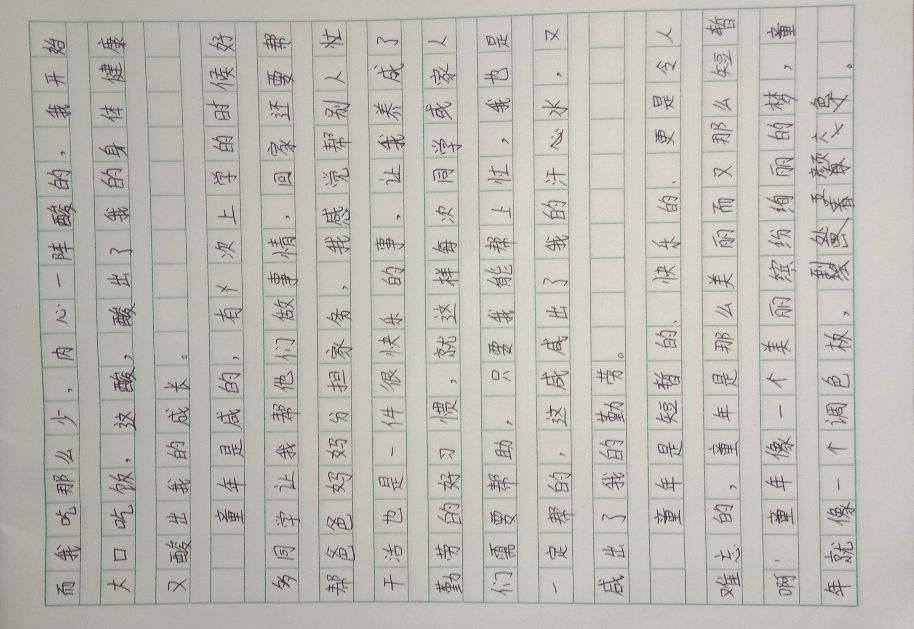 而我吃那么少,内心一阵酸的,我开始
大口吃饭,这酸,酸出了我的身体健康
又酸出我的成长。
童年是咸的,有次上学的时候好
多同学让我帮他们做事情,回家还要帮
帮爸爸妈妈分担家务,我感觉帮别人忙
干活也是一件很快乐的事,让我养成了
勤劳的好习惯,就这样每次同学或家人
们需要帮助,只要我能帮上忙,我也是
一定帮的,这咸咸出了我的汗心水,又
咸出了我的勤劳。
童年是短哲的、快乐的、更是令人
难忘的,童年是那么美丽而又那么短暂
啊!童年像一个美丽缤纷绚丽的梦,童
年就像一个调色板,到处五颜六色。